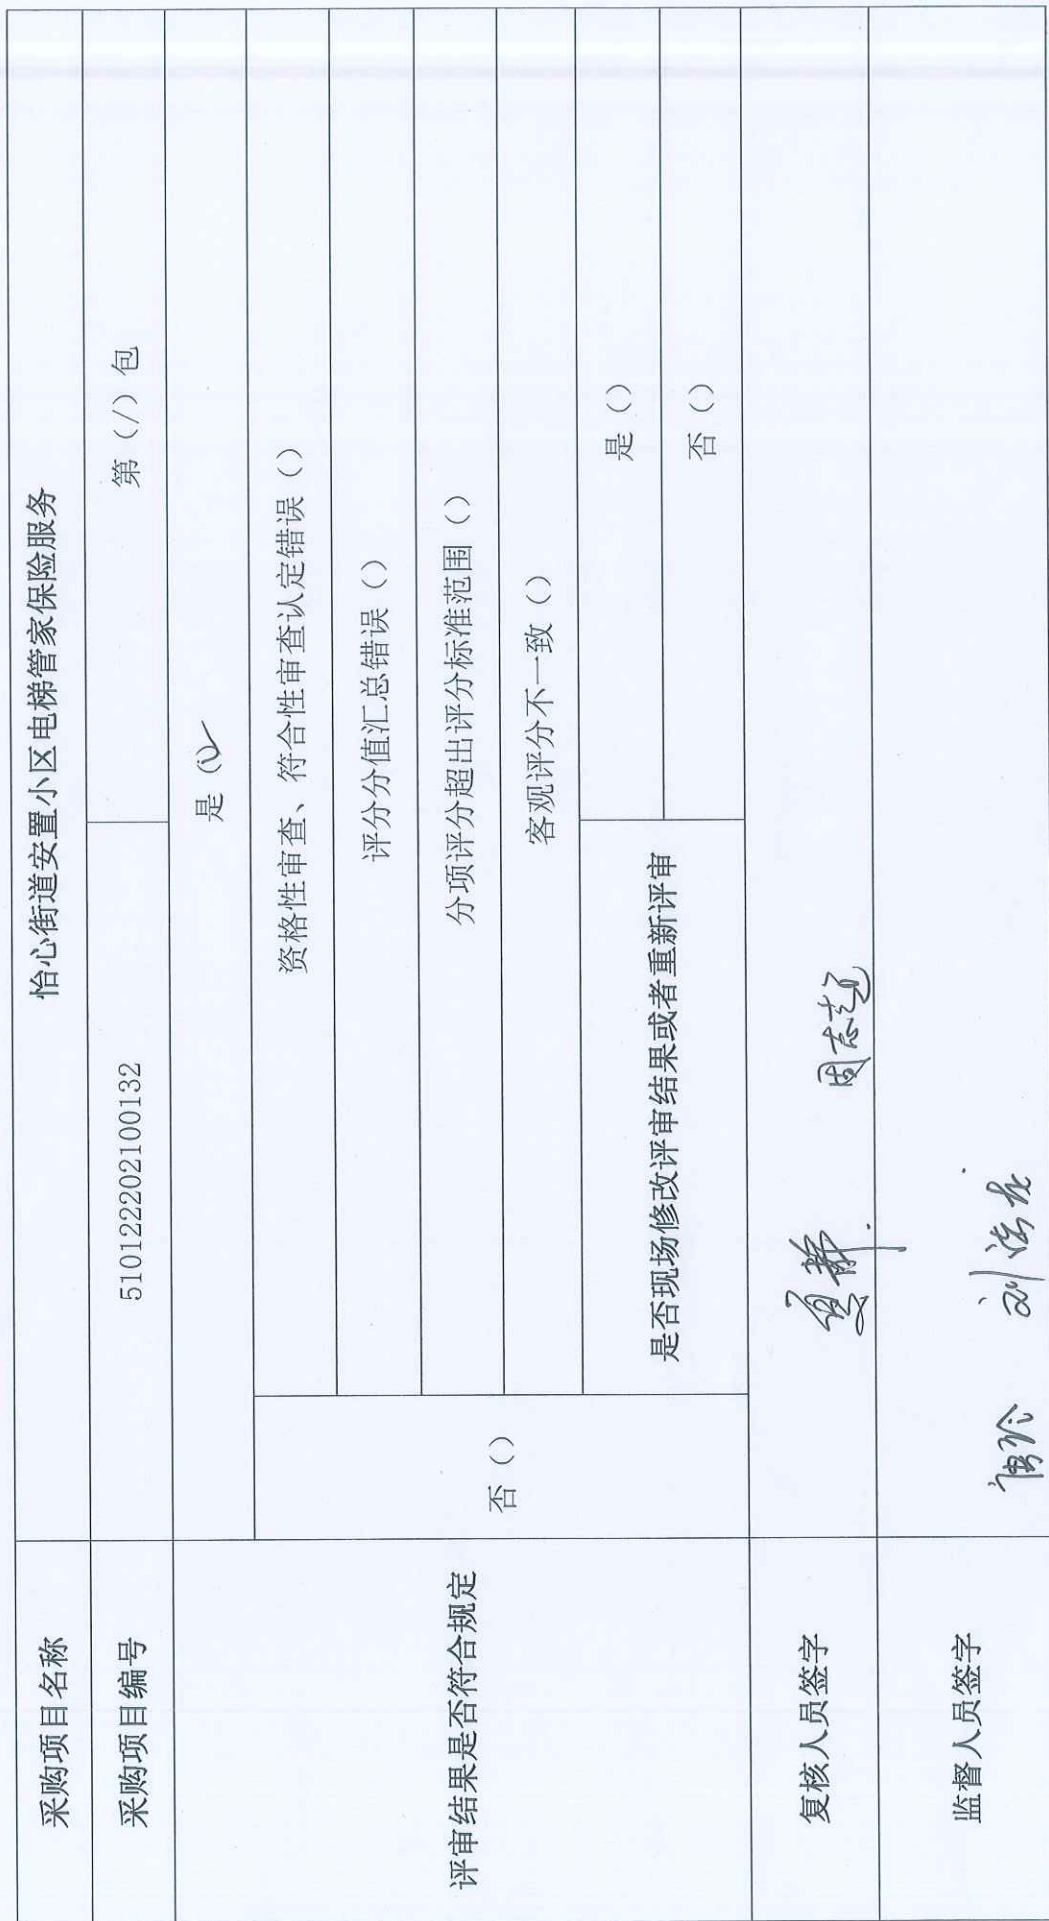 采购项目名称 怡心街道安置小区电梯管家保险服务
采购项目编号 510122202100132 第（/）包
评审结果是否符合规定 是（✓）
否（）
资格性审查、符合性审查认定错误（）
评分分值汇总错误（）
分项评分超出评分标准范围（）
客观评分不一致（）
是否现场修改评审结果或者重新评审
是（）
否（）
复核人员签字
监督人员签字